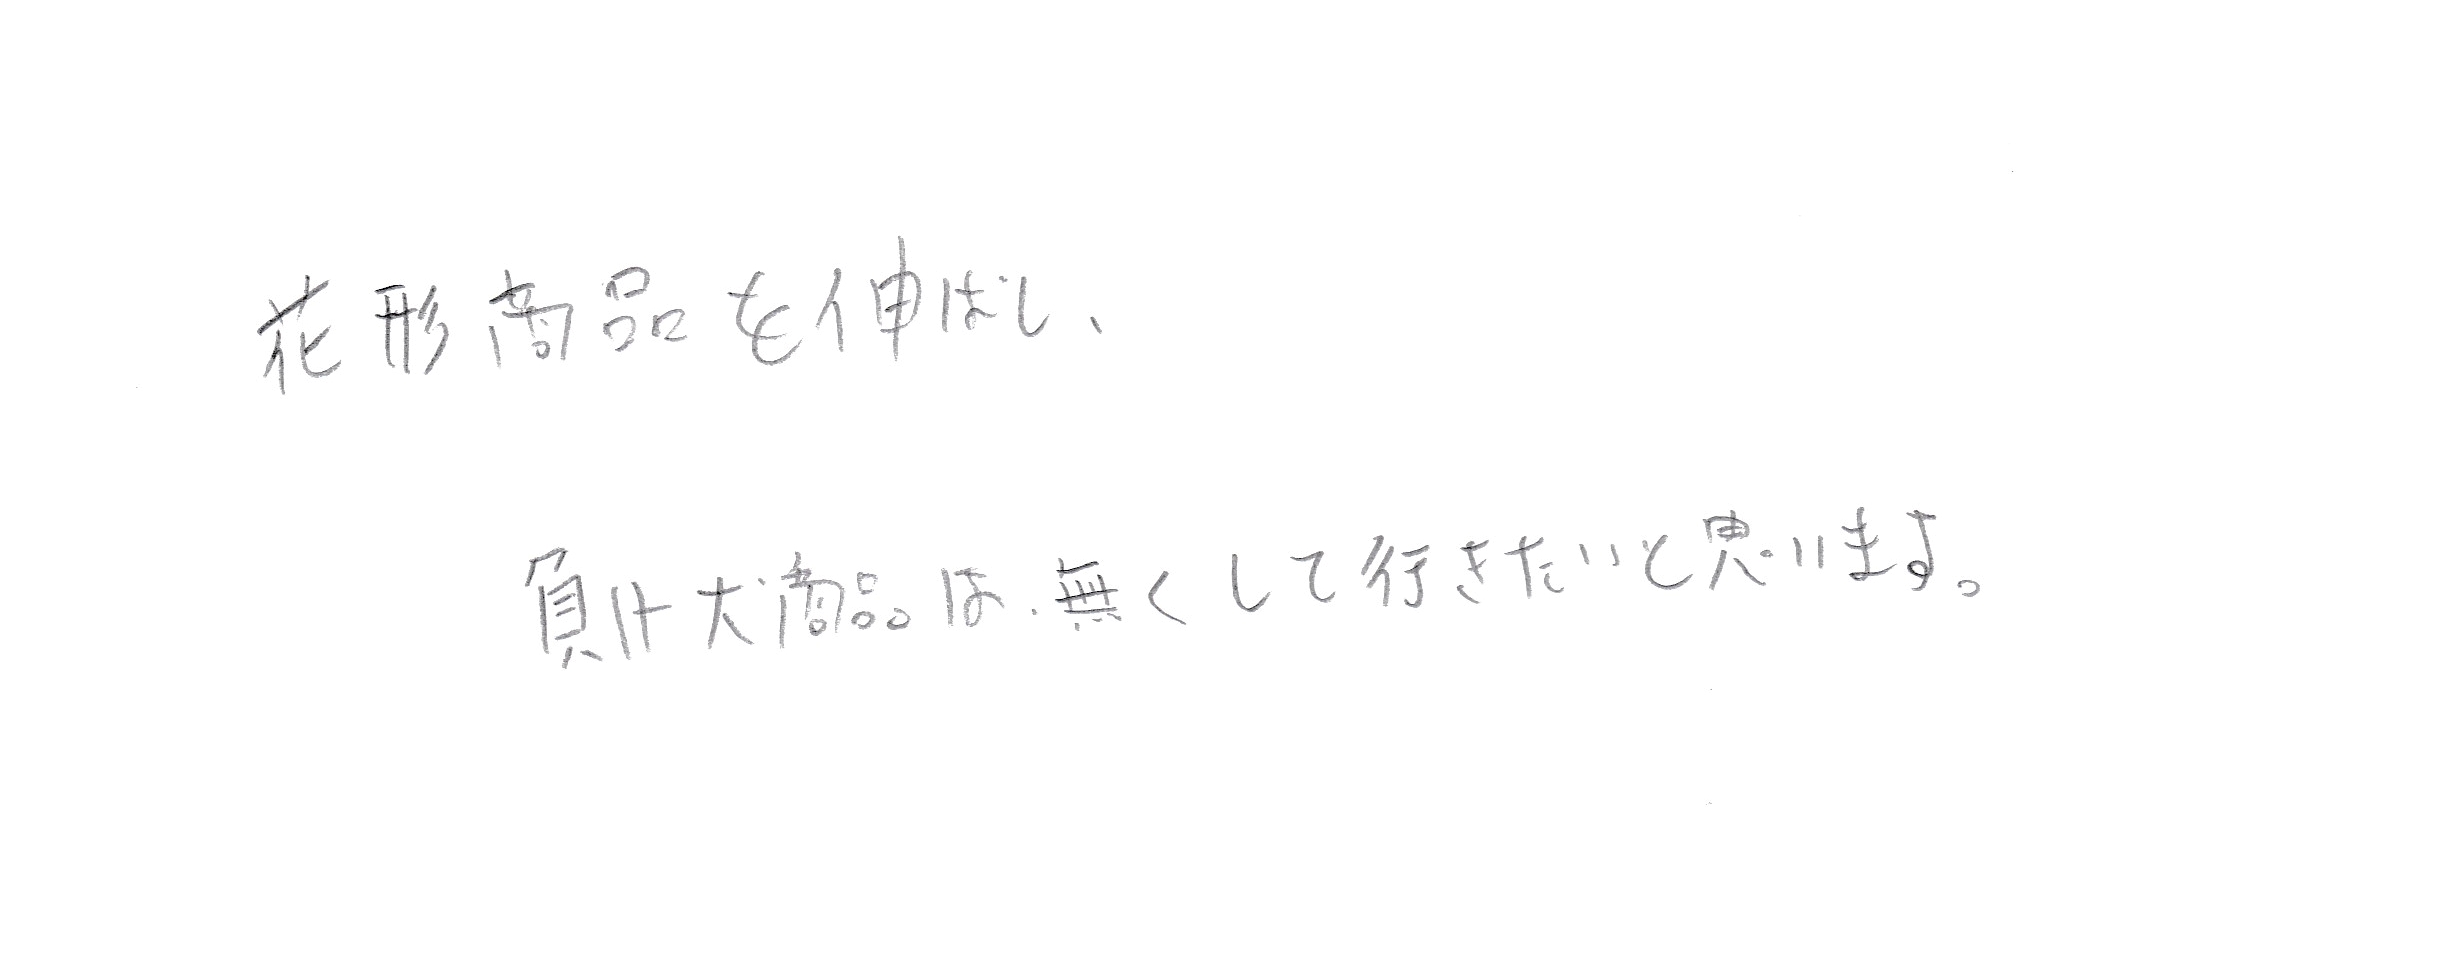 花形商品を伸ばし、
負け犬商品は無くして行きたいと思います。